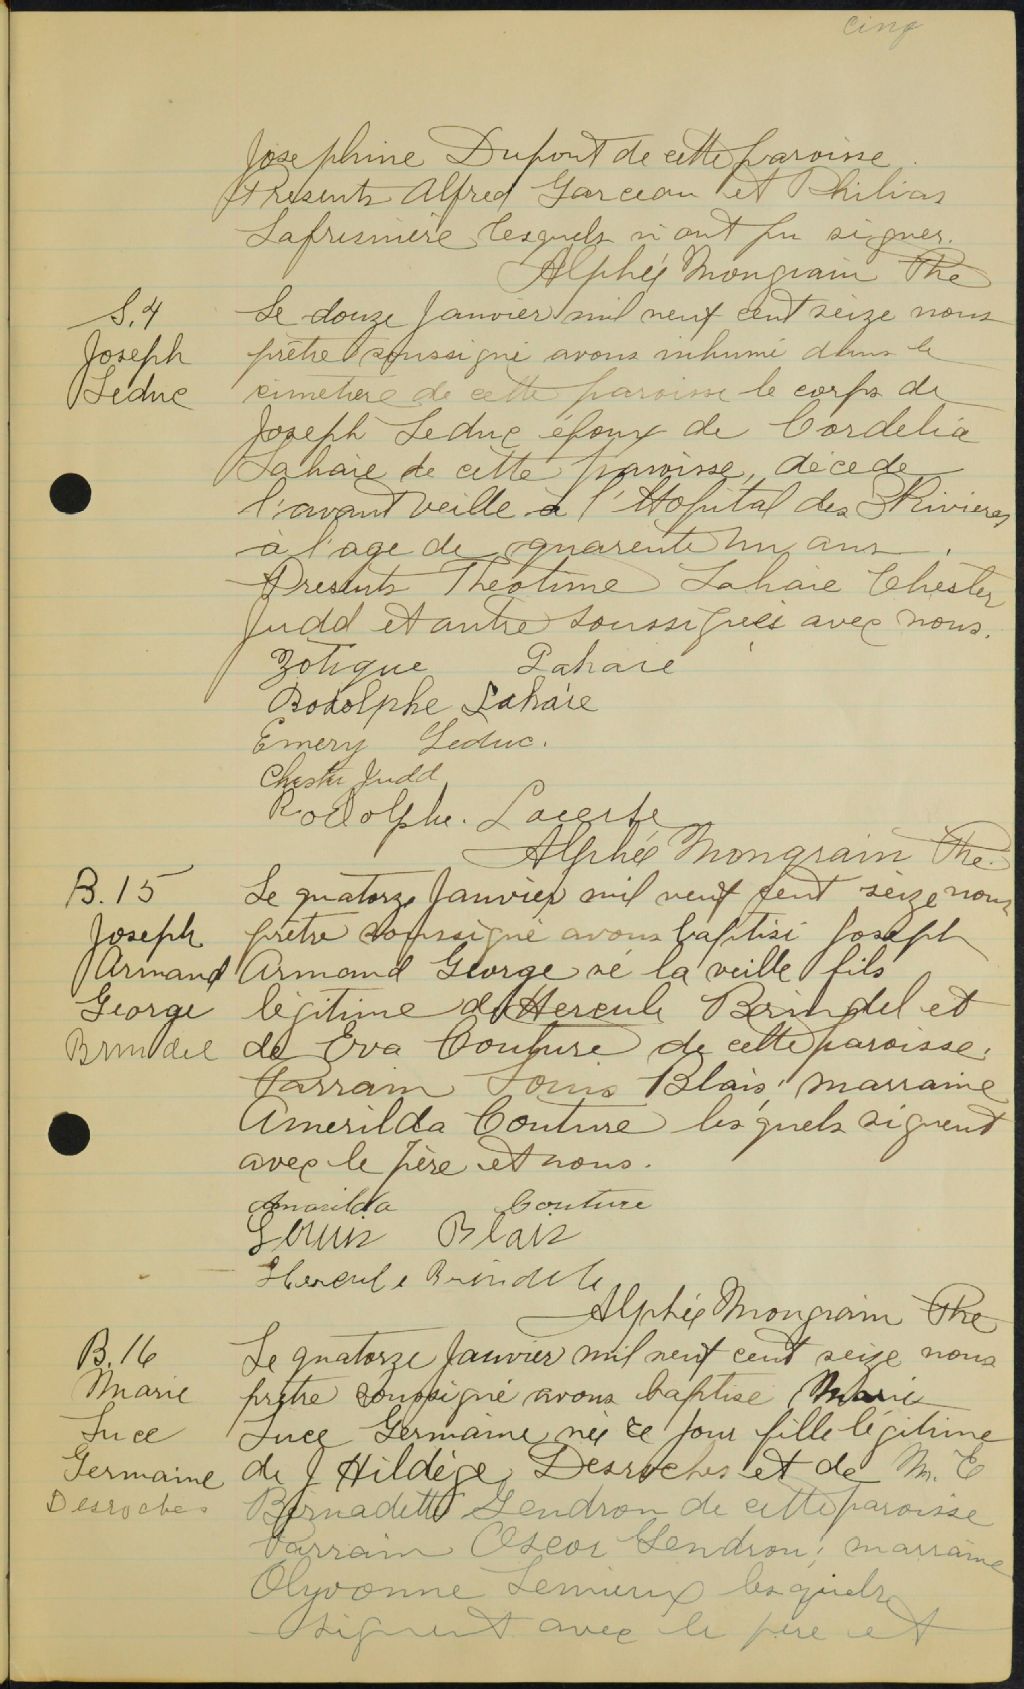 cinq
Josephine Dupont de cette paroisse.
Presents Alfred Garceau et Philias
Lafresnière lesquels n'ont pu signer.
Alphée Mongrain Ptre
S. 4
Joseph
Leduc
Le douze Janvier mil neuf cent seize nous
prêtre soussigné avons inhumé dans le
cimetière de cette paroisse le corps de
Joseph Leduc époux de Cordelia
Lahaie de cette paroisse, décede
l'avant veille à l'Hopital des 3 Rivieres
à l'age de quarente un ans.
Presents Theotime Lahaie Chester
Judd et autre soussignés avec nous.
Zotique Lahaie
Rodolphe Lahaie
Emery Leduc.
Chester Judd
Rodolphe. Lacerte
Alphée Mongrain Ptre.
B. 15
Joseph
Armand
George
Brindel
Le quatorze Janvier mil neuf cent seize nous
prêtre soussigné avons baptisé Joseph
Armand George né la veille fils
légitime d'Hercule Brindel et
de Eva Couture de cette paroisse.
Parrain Louis Blais, marraine
Amerilda Couture lesquels signent
avec le père et nous.
Amarilda Couture
Louis Blais
Hercule Brindele
Alphée Mongrain Ptre
B. 16
Marie
Luce
Germaine
Desroches
Le quatorze Janvier mil neuf cent seize nous
prêtre soussigné avons baptisé Marie
Luce Germaine née ce jour fille légitime
de J Hildège Desroches et de M. E
Bernadette Gendron de cette paroisse
Parrain Oscar Gendron; marraine
Olyvonne Lemieux lesquels
signent avec le père et